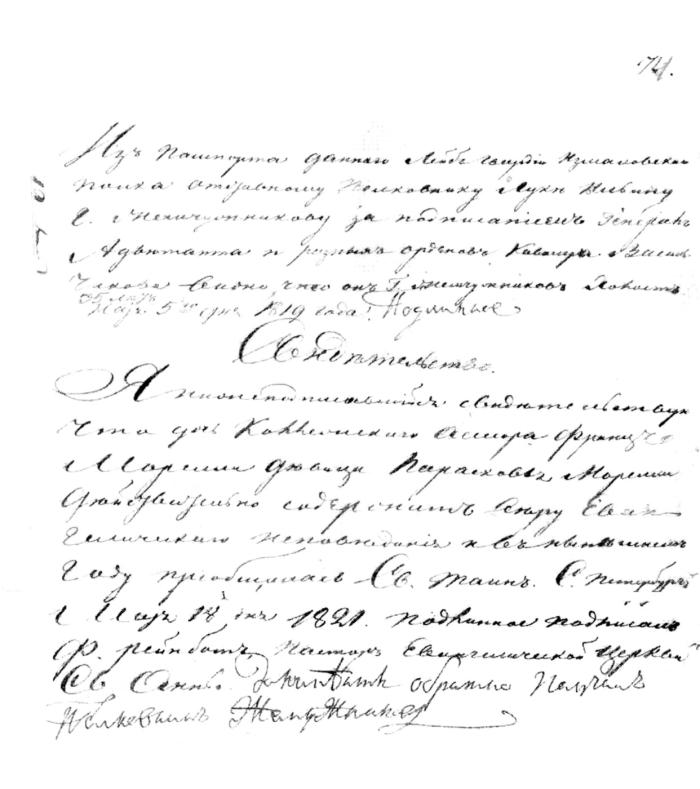 74.
Изъ Пашпорта даннаго Лейбъ гвардіи Измаиловскаго
полка отставному Полковнику Луки Ильину
Г. Жемчужникову за подписаніемъ Генералъ
Адъютанта и разныхъ орденовъ Кавалера Василь
чикова видно, что онъ Г. Жемчужниковъ холостъ
35 лѣтъ
Маія 5го дня 1819 года. Подлинные
Свидѣтельство.
Я нижеподписавшійся свидѣтельствую
что дочь Коллежскаго Асессора Франца
Морелли дѣвица Парасковья Морелли
дѣйствительно содержитъ вѣру Еван
гелическаго исповѣданія и въ нынѣшнемъ
году пріобщилась Св. Таинъ. С. Петербургъ
Маія 18 дня 1821. подлинное подписалъ
Ф. рейнботъ Пасторъ Евангелической Церкви
Св. Анны. обратно Получилъ
Полковникъ Жемчужников